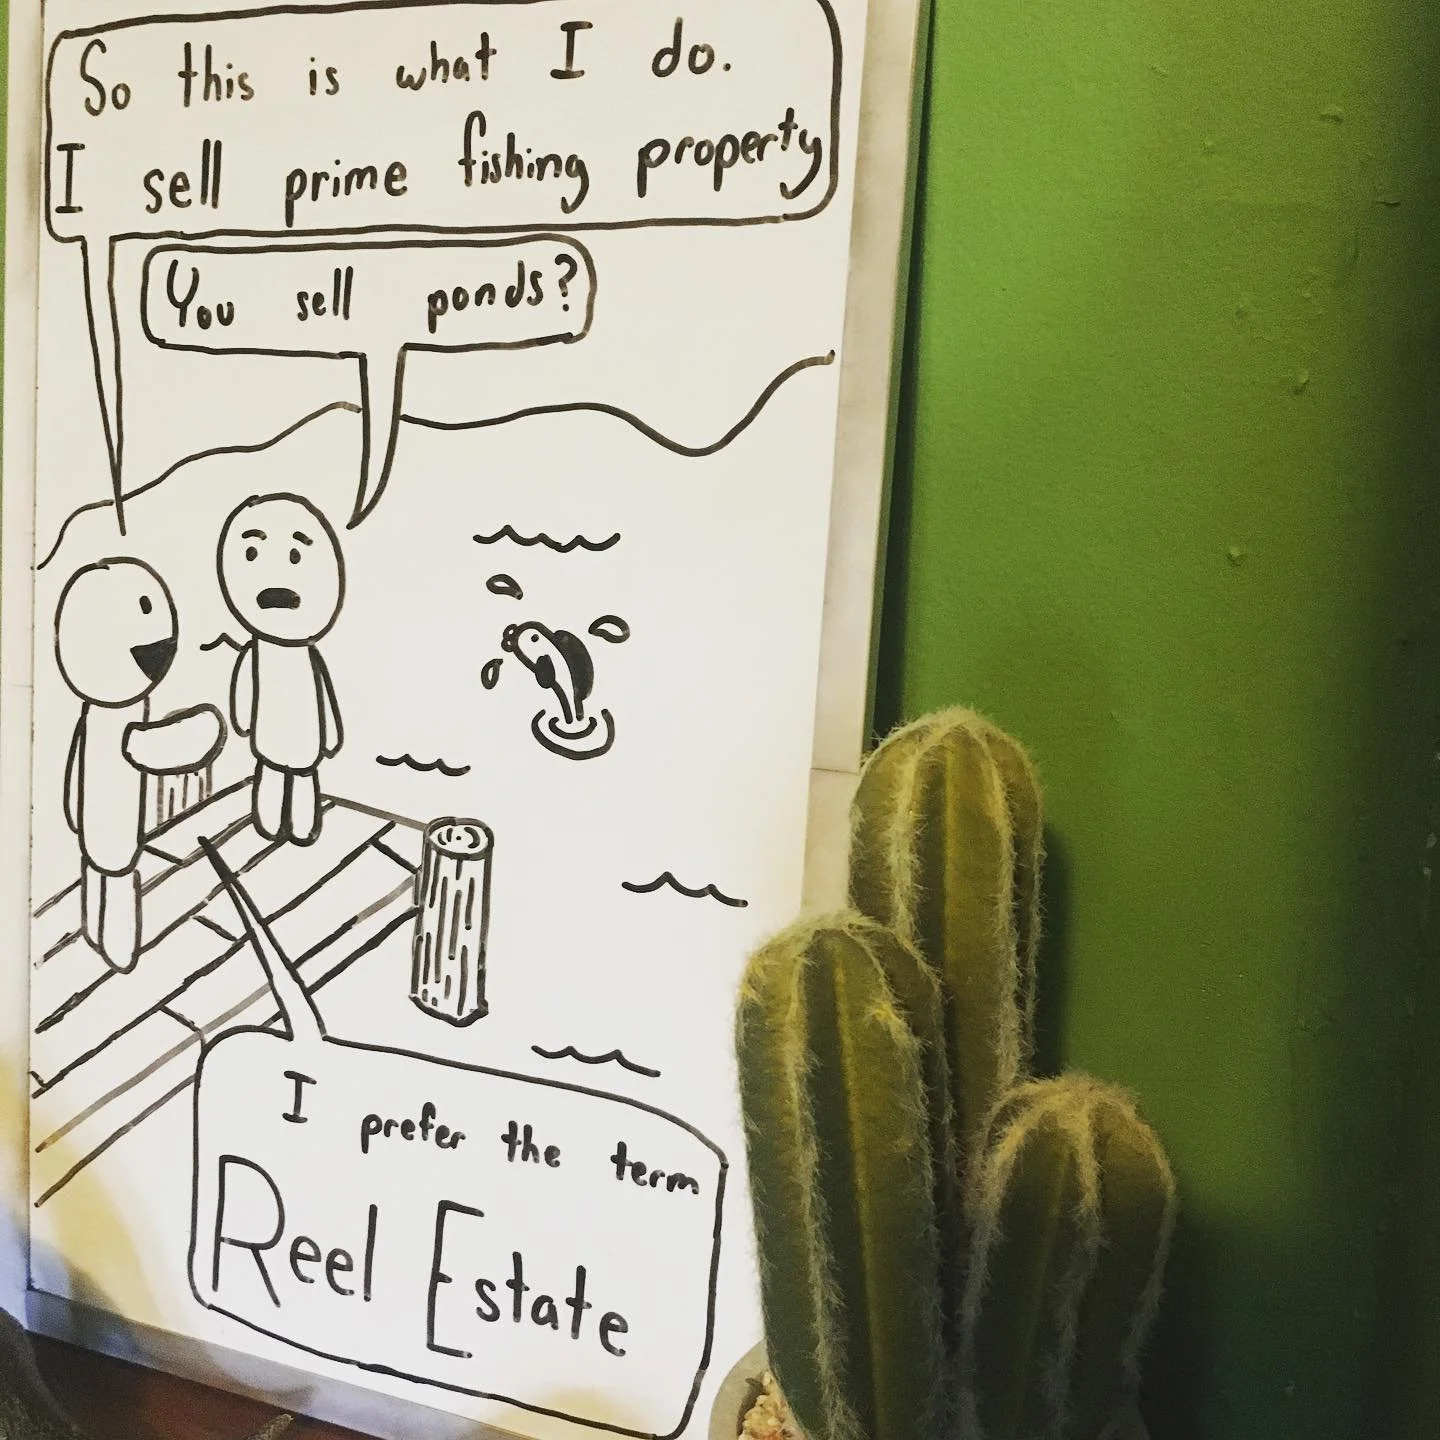 So this is what I do.
I sell prime fishing property
You sell ponds?
I prefer the term
Reel Estate